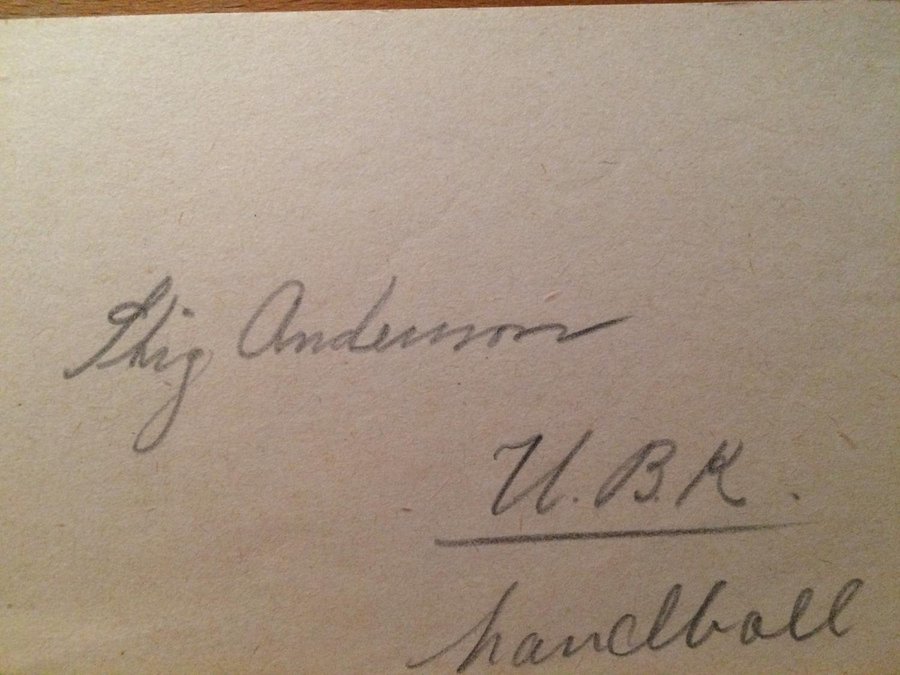 Stig Andersson
U.B.K.
handboll